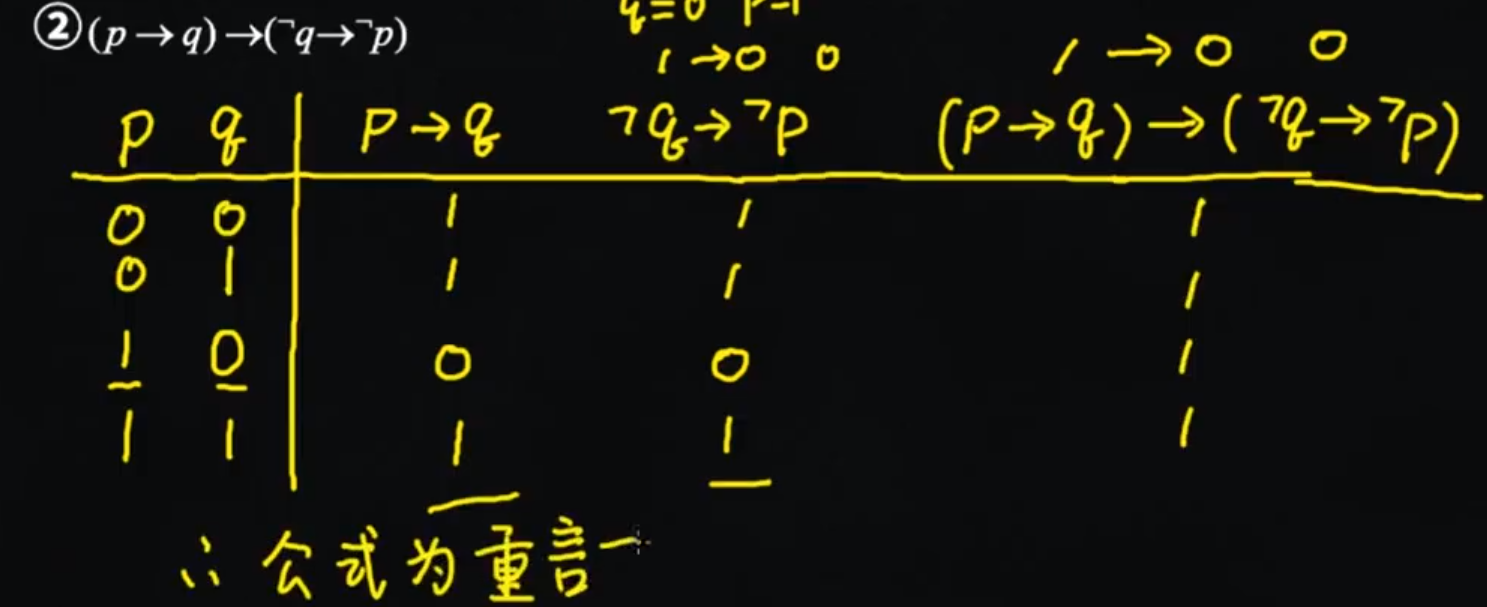 ②(p→q)→(¬q→¬p)
q=0 p=1
1→0 0
1→0 0
p q p→q ¬q→¬p (p→q)→(¬q→¬p)
0 0 1 1 1
0 1 1 1 1
1 0 0 0 1
1 1 1 1 1
∴ 公式为重言